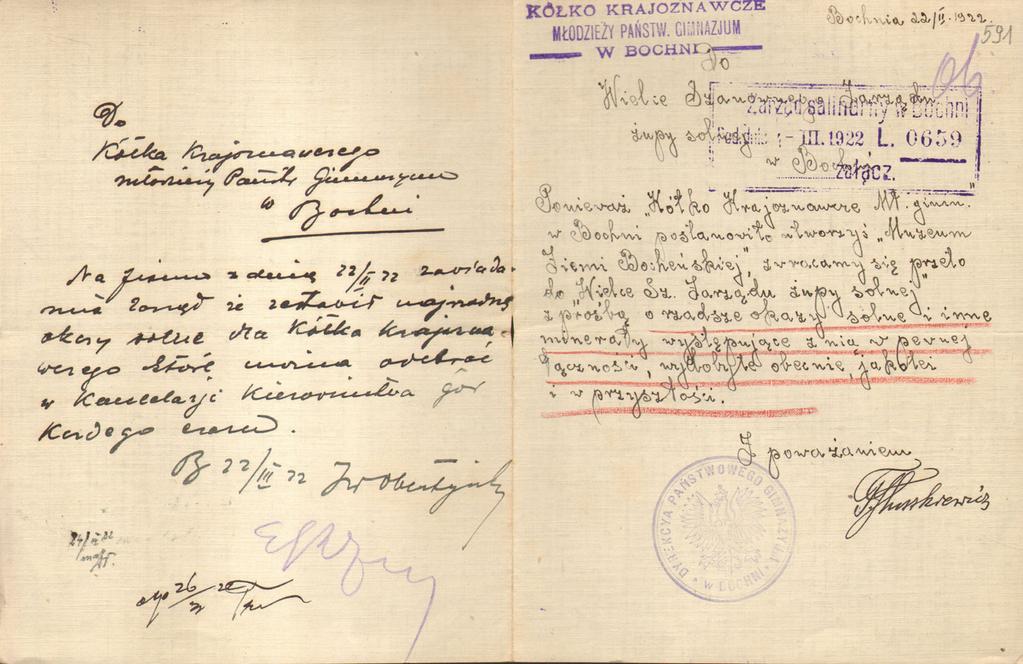 Do
Kółka Krajoznawczego
młodzieży Państw Gimnazyum
w
Bochni
Na pismo z dnia 22/II 22 zawiada-
mia Zarząd że zestawił
okazy solne dla Kółka Krajozna-
wczego które można odebrać
w Kancelarji Kierownictwa gór
każdego czasu.
B 22/III 22
24/III 22
26
KÓŁKO KRAJOZNAWCZE
MŁODZIEŻY PAŃSTW. GIMNAZJUM
W BOCHNI
Bochnia 22/II. 1922.
591
Do
Wielce Szanownego Zarządu
żupy solnej
w Bochni
Zarząd salinarny w Bochni
III. 1922 L. 0659
załącz.
Ponieważ „Kółko Krajoznawcze Mł. gimn."
w Bochni postanowiło utworzyć „Muzeum
Ziemi Bocheńskiej", zwracamy się przeto
do „Wielce Sz. Zarządu żupy solnej"
z prośbą o rzadsze okazy solne i inne
minerały występujące z nią w pewnej
łączności, wydobyte obecnie, jakoteż
i w przyszłości.
Z poważaniem
DYREKCYA PAŃSTWOWEGO GIMNAZYUM
W BOCHNI